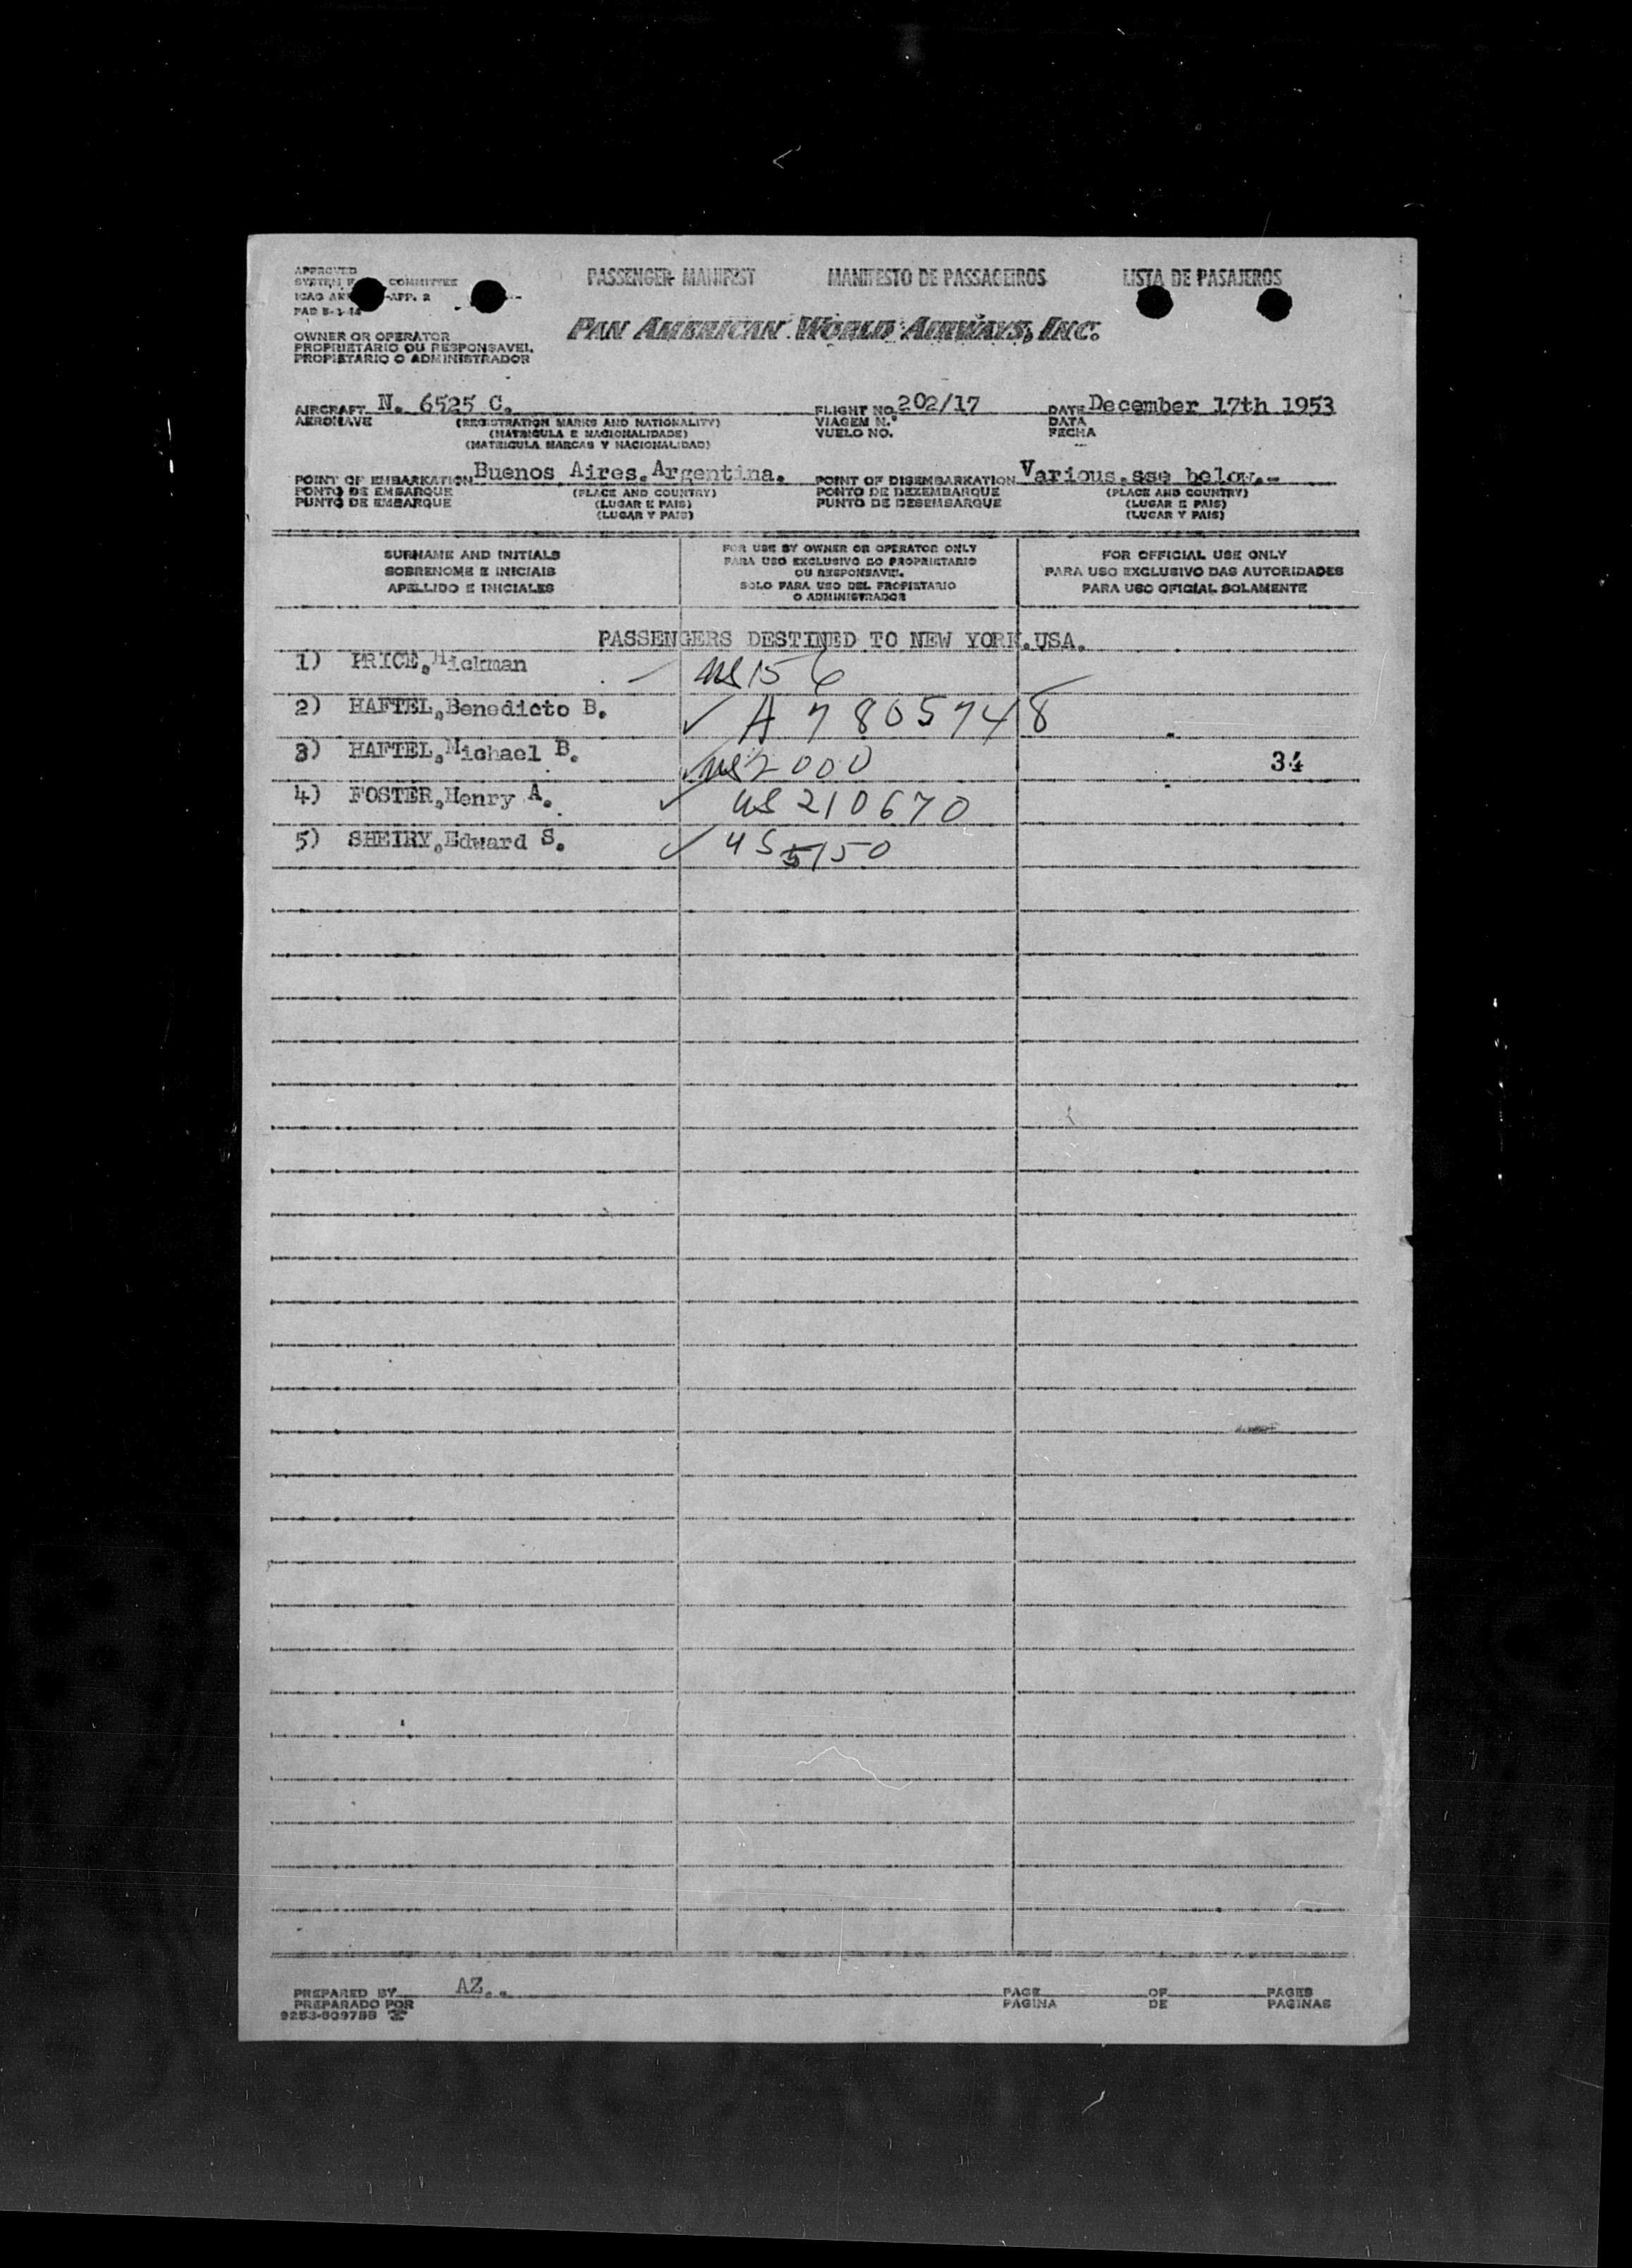 PASSENGER MANIFEST MANIFESTO DE PASSAGEIROS LISTA DE PASAJEROS
APPROVED
SYSTEM COMMITTEE
ICAO -APP. 2
OWNER OR OPERATOR
PROPRIETARIO OU RESPONSAVEL
PROPIETARIO O ADMINISTRADOR
PAN AMERICAN WORLD AIRWAYS, INC.
AIRCRAFT N. 6525 C. FLIGHT NO. 202/17 DATE December 17th 1953
AERONAVE (REGISTRATION MARKS AND NATIONALITY) VIAGEM N.º DATA
(MATRICULA E NACIONALIDADE) VUELO NO. FECHA
(MATRICULA MARCAS Y NACIONALIDAD)
POINT OF EMBARKATION Buenos Aires.Argentina. POINT OF DISEMBARKATION Various.sse below.-
PONTO DE EMBARQUE (PLACE AND COUNTRY) PONTO DE DEZEMBARQUE (PLACE AND COUNTRY)
PUNTO DE EMBARQUE (LUGAR E PAIS) PUNTO DE DESEMBARQUE (LUGAR E PAIS)
(LUGAR Y PAIS) (LUGAR Y PAIS)
SURNAME AND INITIALS
SOBRENOME E INICIAIS
APELLIDO E INICIALES
FOR USE BY OWNER OR OPERATOR ONLY
PARA USO EXCLUSIVO DO PROPRIETARIO
OU RESPONSAVEL
SOLO PARA USO DEL PROPIETARIO
O ADMINISTRADOR
FOR OFFICIAL USE ONLY
PARA USO EXCLUSIVO DAS AUTORIDADES
PARA USO OFICIAL SOLAMENTE
PASSENGERS DESTINED TO NEW YORK.USA.
1) PRICE,Hickman us 156
2) HAFTEL,Benedicto B. ✓ A 7805748
3) HAFTEL,Michael B. ✓ us 2000 34
4) FOSTER,Henry A. ✓ us 210670
5) SHEIRY,Edward S. ✓ us 5150
PREPARED BY AZ.. PAGE OF PAGES
PREPARADO POR PAGINA DE PAGINAS